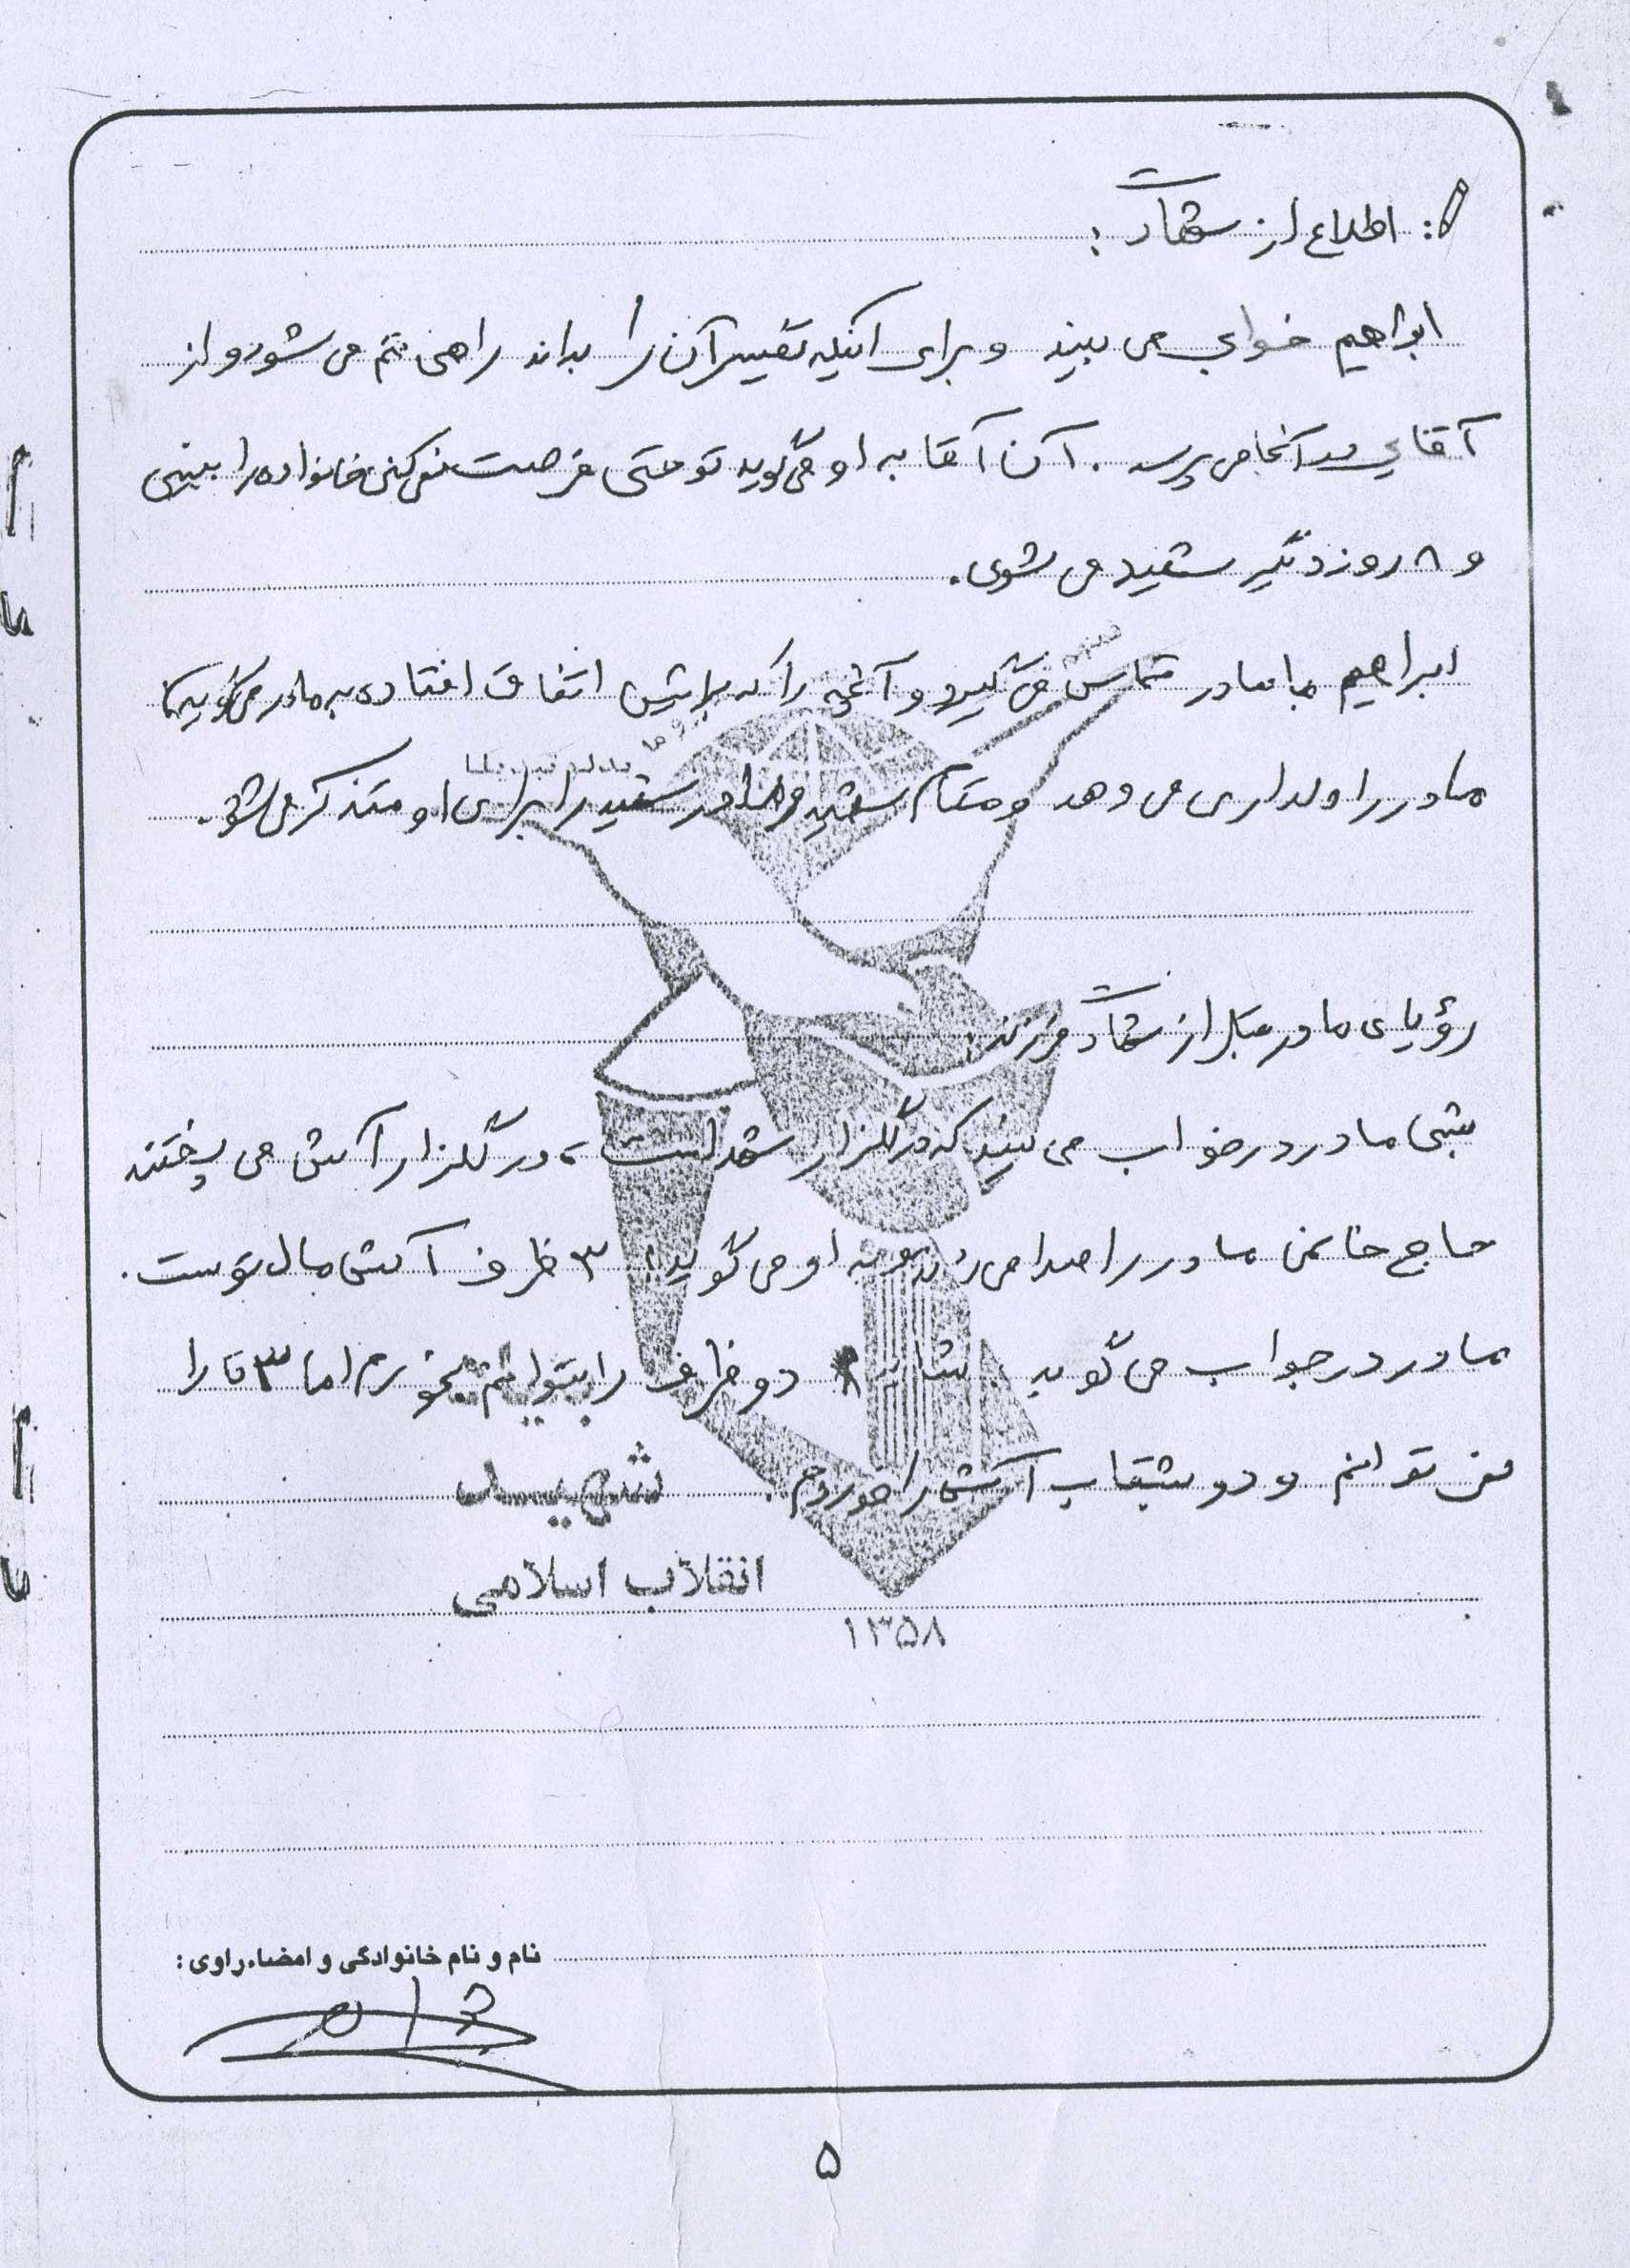 : اطلاع از شهادت :
ابراهیم خوابی می بیند و برای اینکه تفسیر آن را بداند راهی قم می شود و از
آقایی در آنجا می پرسد . آن آقا به او می گوید تو حتی فرصت نمی کنی خانواده را ببینی
و ۸ روز دیگر شهید می شوی .
ابراهیم با مادر تماس می گیرد و آنچه را که برایش اتفاق افتاده به مادر می گوید
مادر را دلداری می دهد و مقام شهید و مادر شهید را برای او متذکر می شود .
رؤیای مادر قبل از شهادت فرزند :
شبی مادر در خواب می بیند که در گلزار شهداست ، در گلزار آش می پختند
حاج خانمی مادر را صدا می زند و به او می گوید : ۳ ظرف آش مال توست .
مادر در جواب می گوید شاید دو ظرف را بتوانم بخورم اما ۳ تا را
نمی توانم و دو بشقاب آش را خوردم .
شهید
انقلاب اسلامی
۱۳۵۸
نام و نام خانوادگی و امضاء راوی :
۵